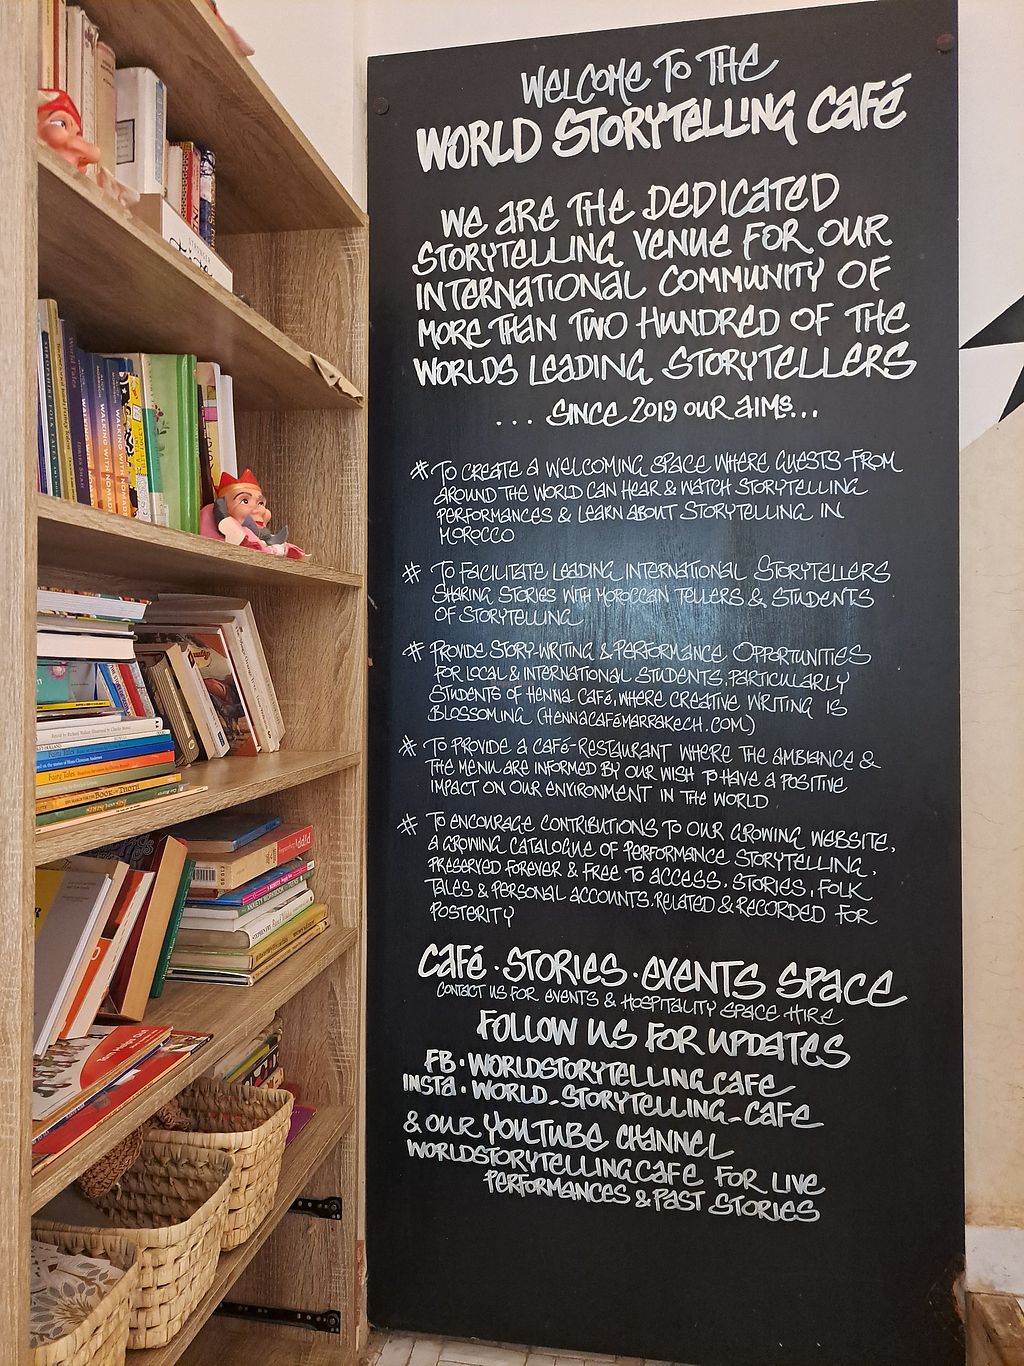 WELCOME TO THE
WORLD STORYTELLING CAFÉ
WE ARE THE DEDICATED
STORYTELLING VENUE FOR OUR
INTERNATIONAL COMMUNITY OF
MORE THAN TWO HUNDRED OF THE
WORLDS LEADING STORYTELLERS
... SINCE 2019 OUR AIMS...
# TO CREATE A WELCOMING SPACE WHERE GUESTS FROM
AROUND THE WORLD CAN HEAR & WATCH STORYTELLING
PERFORMANCES & LEARN ABOUT STORYTELLING IN
MOROCCO
# TO FACILITATE LEADING INTERNATIONAL STORYTELLERS
SHARING STORIES WITH MOROCCAN TELLERS & STUDENTS
OF STORYTELLING
# PROVIDE STORY-WRITING & PERFORMANCE OPPORTUNITIES
FOR LOCAL & INTERNATIONAL STUDENTS, PARTICULARLY
STUDENTS OF HENNA CAFÉ, WHERE CREATIVE WRITING IS
BLOSSOMING (HENNACAFÉMARRAKECH.COM)
# TO PROVIDE A CAFÉ-RESTAURANT WHERE THE AMBIANCE &
THE MENU ARE INFORMED BY OUR WISH TO HAVE A POSITIVE
IMPACT ON OUR ENVIRONMENT IN THE WORLD
# TO ENCOURAGE CONTRIBUTIONS TO OUR GROWING WEBSITE,
A GROWING CATALOGUE OF PERFORMANCE STORYTELLING,
PRESERVED FOREVER & FREE TO ACCESS. STORIES, FOLK
TALES & PERSONAL ACCOUNTS. RELATED & RECORDED FOR
POSTERITY
CAFÉ · STORIES · EVENTS SPACE
CONTACT US FOR EVENTS & HOSPITALITY SPACE HIRE
FOLLOW US FOR UPDATES
FB · WORLDSTORYTELLINGCAFE
INSTA · WORLD_STORYTELLING_CAFE
& OUR YOUTUBE CHANNEL
WORLDSTORYTELLINGCAFE FOR LIVE
PERFORMANCES & PAST STORIES
STRONGER
World Tales
WALKING WITH NOMADS
WALKING WITH NOMADS
Fairy Tales
BOOK OF THOTH
PIPPI